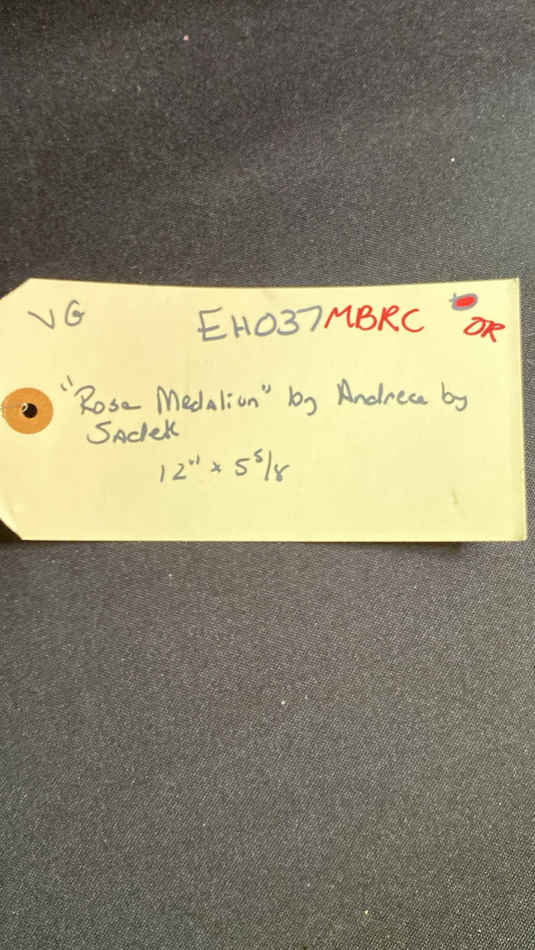 VG EH037MBRC OR
"Rose Medalion" by Andrea by
Sadek
12" x 5 5/8